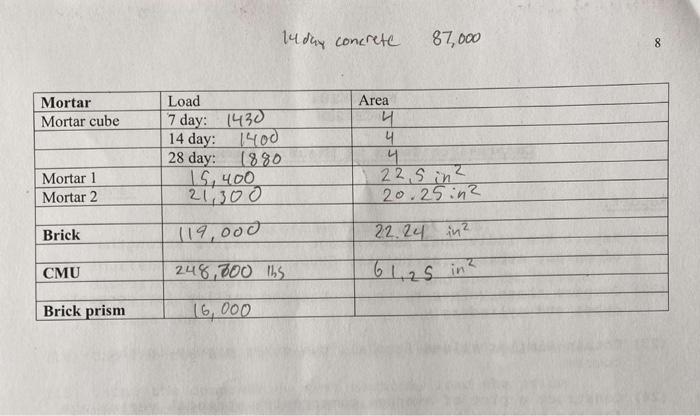 14 day concrete 87,000
8
Mortar Load Area
Mortar cube 7 day: 1430 4
14 day: 1400 4
28 day: 1880 4
Mortar 1 15,400 22.5 in²
Mortar 2 21,300 20.25 in²
Brick 119,000 22.24 in²
CMU lbs 61.25 in²
Brick prism 16,000